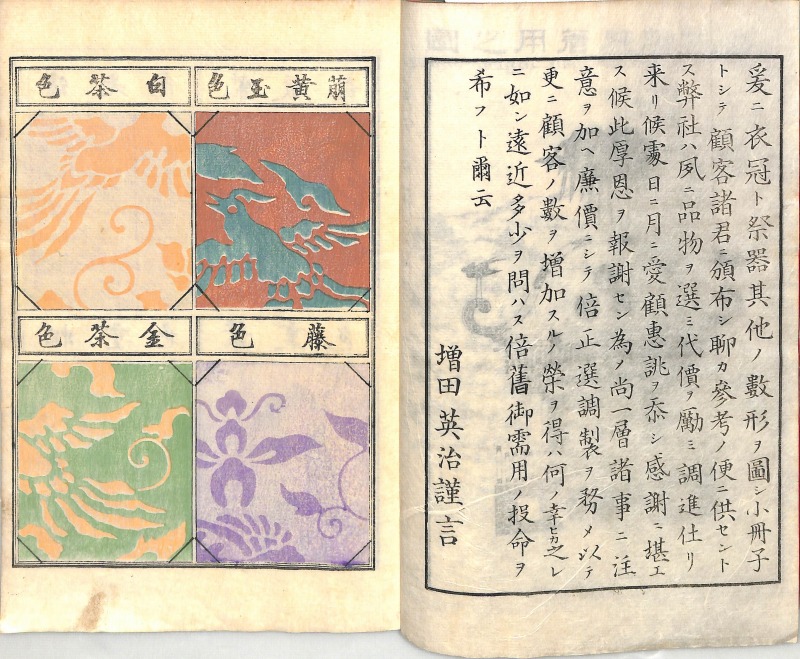 爰ニ衣冠ト祭器其他ノ數形ヲ圖シ小冊子
トシテ顧客諸君ニ頒布シ聊カ參考ノ便ニ供セント
ス弊社ハ夙ニ品物ヲ選ミ代價ヲ勵ミ調進仕リ
来リ候處日ニ月ニ愛顧惠誂ヲ忝シ感謝ニ堪エ
ス候此厚恩ヲ報謝セン為メ尚一層諸事ニ注
意ヲ加ヘ廉價ニシテ倍正選調製ヲ務メ以テ
更ニ顧客ノ數ヲ増加スルノ榮ヲ得ハ何ノ幸ヒカ之レ
ニ如ン遠近多少ヲ問ハス倍舊御需用ノ投命ヲ
希フト爾云
増田英治謹言
萠黄玉色
白茶色
藤色
金茶色